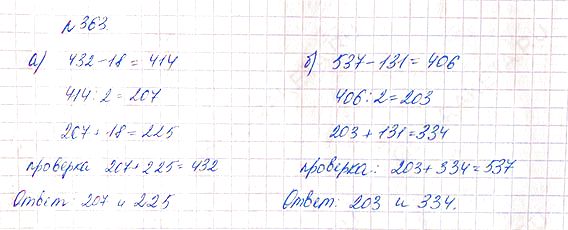 № 363.
а) 432 – 18 = 414
414 : 2 = 207
207 + 18 = 225
проверка 207 + 225 = 432
Ответ: 207 и 225
б) 537 – 131 = 406
406 : 2 = 203
203 + 131 = 334
проверка: 203 + 334 = 537
Ответ: 203 и 334.